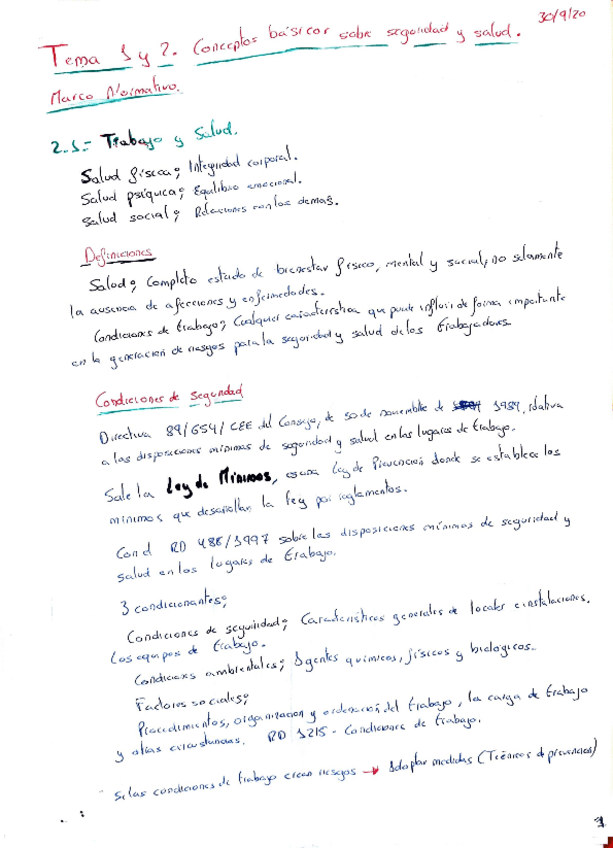 30/9/20
Tema 1 y 2. Conceptos básicos sobre seguridad y salud.
Marco Normativo.
2.1.- Trabajo y Salud.
Salud física; Integridad corporal.
Salud psíquica; Equilibrio emocional.
Salud social; Relaciones con los demás.
Definiciones
Salud; Completo estado de bienestar físico, mental y social, no solamente
la ausencia de afecciones y enfermedades.
Condiciones de trabajo; Cualquier característica que puede influir de forma importante
en la generación de riesgos para la seguridad y salud de los trabajadores.
Condiciones de seguridad
Directiva 89/654/CEE del Consejo, de 30 de noviembre de 1989, relativa
a las disposiciones mínimas de seguridad y salud en los lugares de trabajo.
Sale la Ley de Mínimos, es una Ley de Prevención donde se establece los
mínimos que desarrollan la ley por reglamentos.
Con el RD 486/1997 sobre las disposiciones mínimas de seguridad y
salud en los lugares de trabajo.
3 condicionantes;
Condiciones de seguridad; Características generales de locales e instalaciones.
Los equipos de trabajo.
Condiciones ambientales; Agentes químicos, físicos y biológicos.
Factores sociales;
Procedimientos, organización y ordenación del trabajo, la carga de trabajo
y otras circunstancias. RD 1215 - Condiciones de trabajo.
Si las condiciones de trabajo crean riesgos → Adoptar medidas (Técnicas de prevención)
1